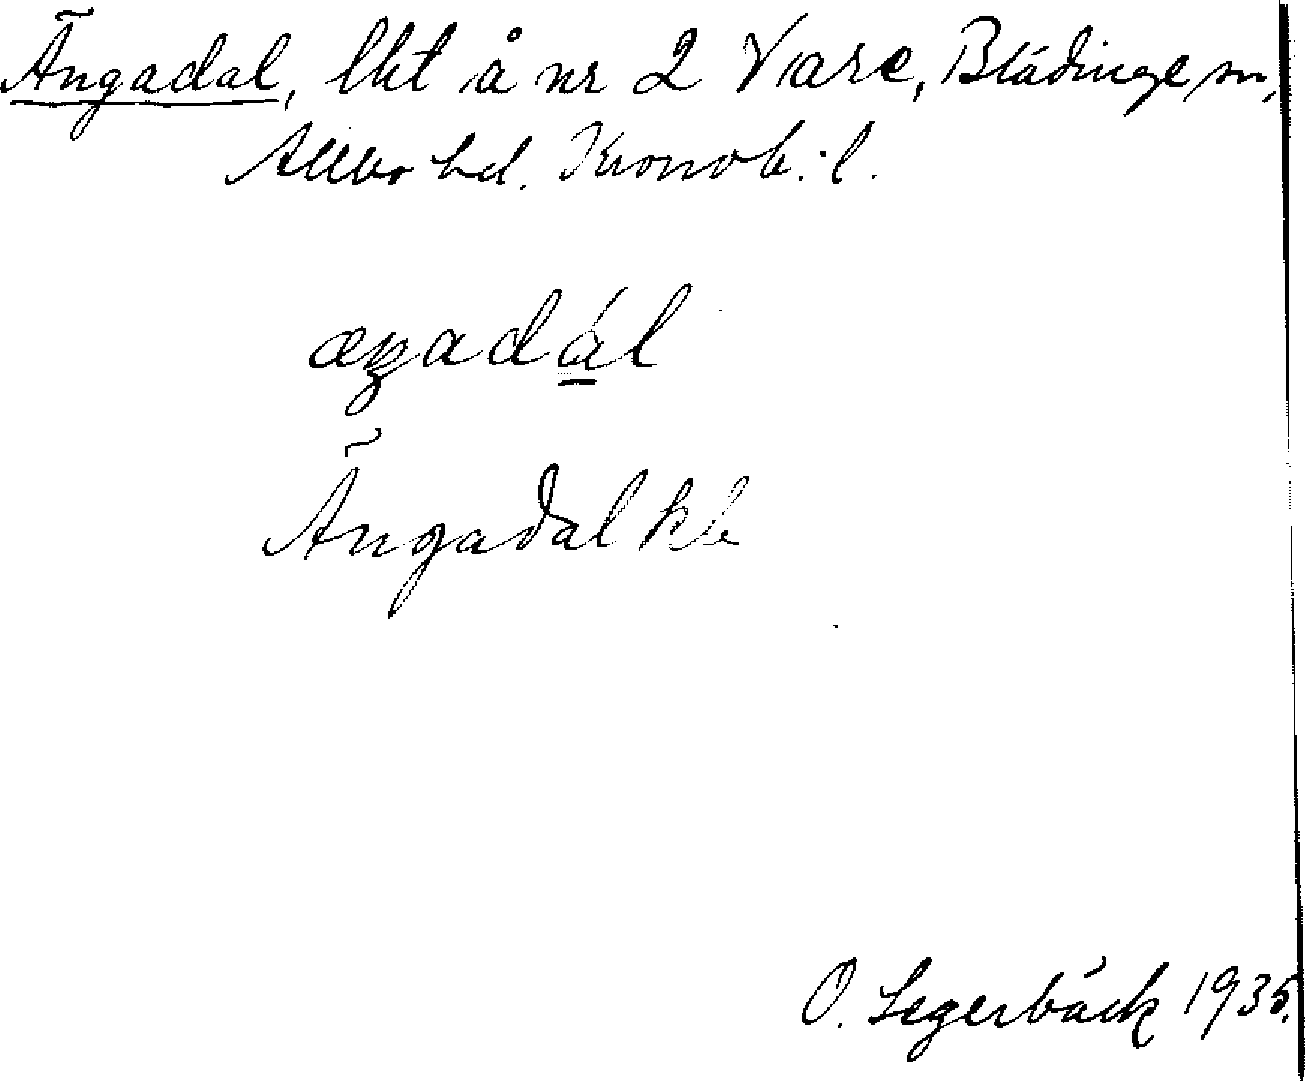 Ängadal, lht å nr 2 Vare, Blädinge sn,
Allbo hd. Kronob. l.
æŋadál
Ängadal kb
O. Segerbäck 1935.